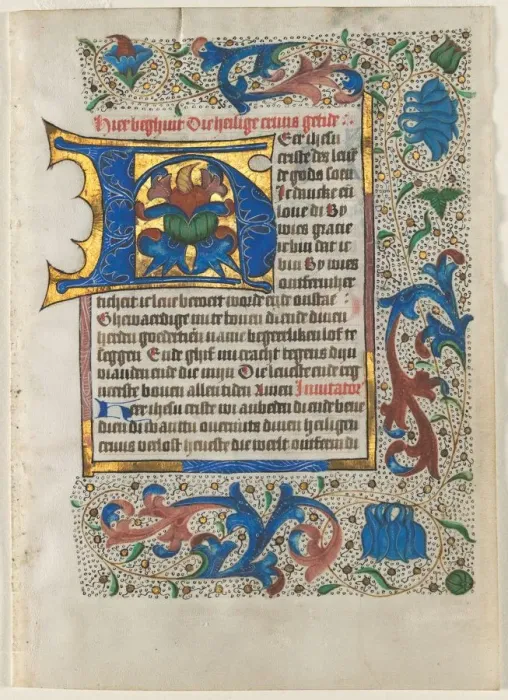 Hier beghint Die heilige cruus getide
HEer ihesu
criste des leue
de gods soen
Ic dancke en
loue di By
wies gracie
ic bin dat ic
bin By wies
ontfermher
ticheit ic leue beweert worde ende onstae
Ghewaerdige mi te louen di ende dinen
heren goedertien name begerliken lof te
seggen Ende ghif mi cracht tegens dijn
vianden ende die mijn Die leuste ende reg
neerste bouen allen tiden Amen Inuitator
Heer ihesu criste wi anbeden di ende bene
dien di want du ouermits dinen heiligen
cruus verlost heueste die werlt ontferm di